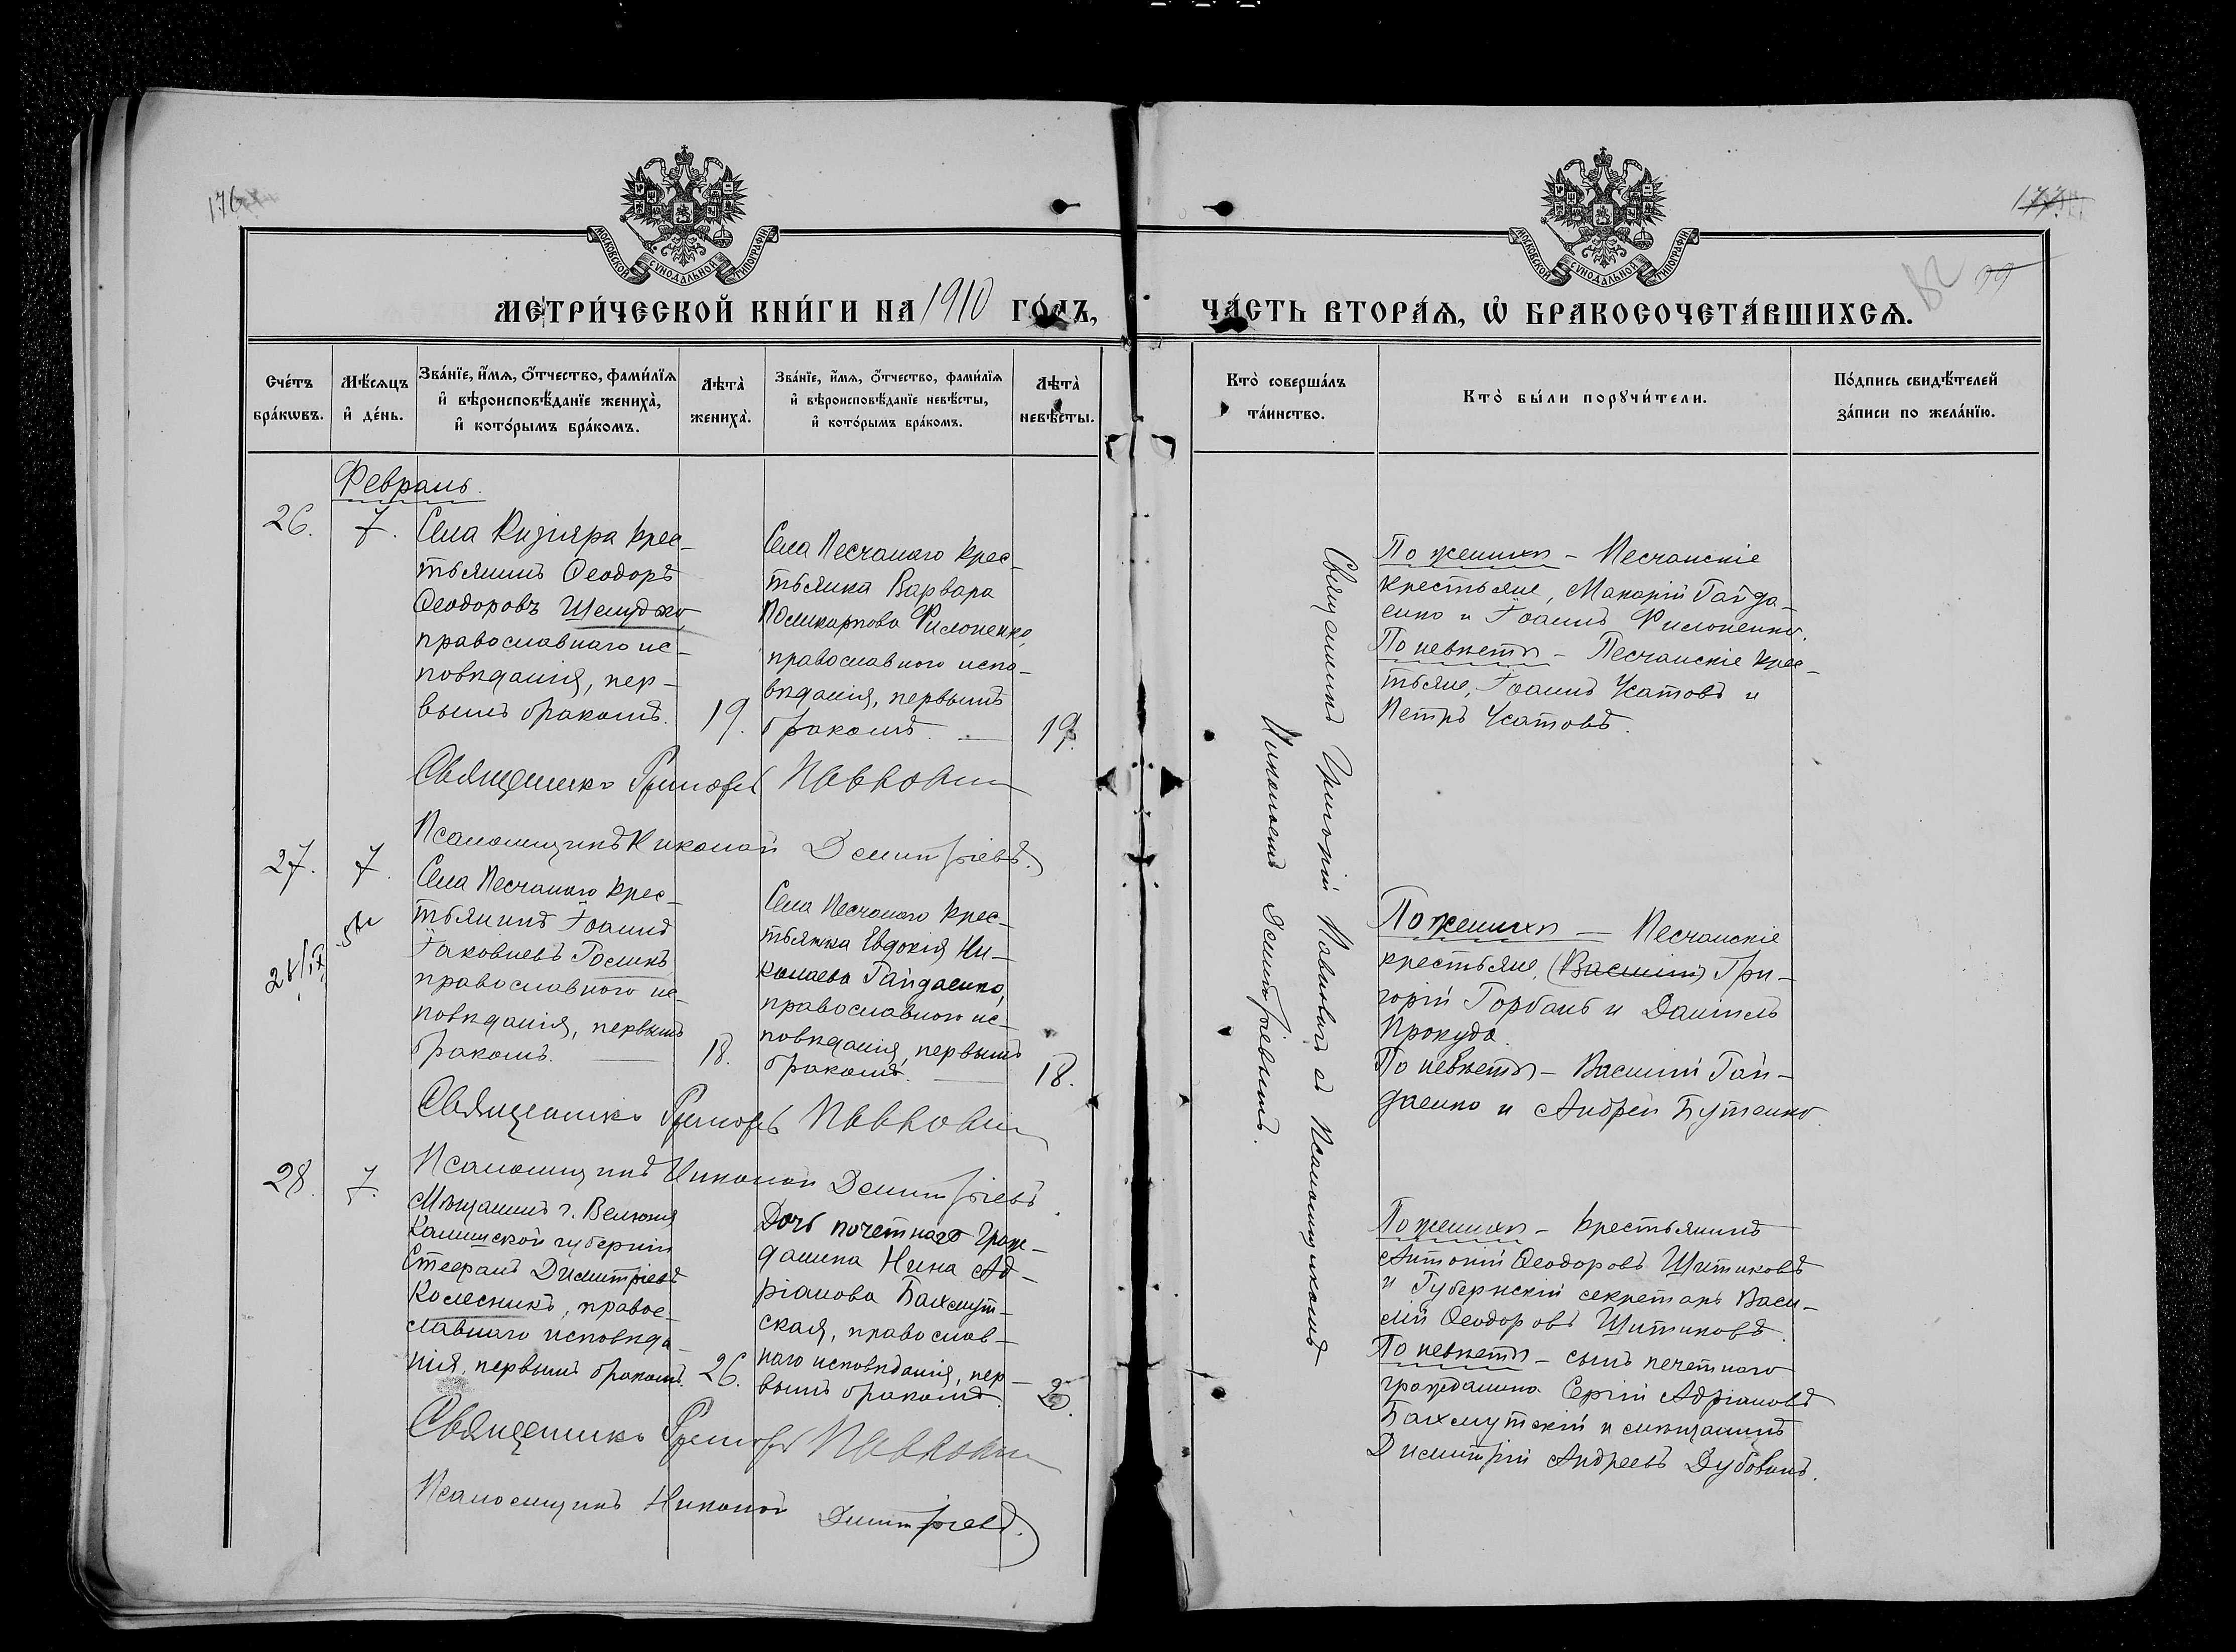 176
МОСКОВСКОЙ СѴНОДАЛЬНОЙ ТИПОГРАФІИ
МЕТРИ́ЧЕСКОЙ КНИ́ГИ НА 1910 ГО́ДЪ,
Сче́тъ бра́кѡвъ.
Мѣ́сяцъ и҆ де́нь.
Зва́нїе, и҆́мѧ, ѻ҆́тчество, фами́лїѧ
и҆ вѣроисповѣ́данїе жениха̀,
и҆ кото́рымъ бра́комъ.
Лѣта̀ жениха̀.
Зва́нїе, и҆́мѧ, ѻ҆́тчество, фами́лїѧ
и҆ вѣроисповѣ́данїе невѣ́сты,
и҆ кото́рымъ бра́комъ.
Лѣта̀ невѣ́сты.
Февраль.
26.
7.
Села Кизіяра крес-
тьянинъ Ѳеодоръ
Ѳеодоровъ
православнаго ис-
повѣданія, пер-
вымъ бракомъ.
19.
Села Песчанаго крес-
тьянка Варвара
Поликарпова Филоненко,
православнаго испо-
вѣданія, первымъ
бракомъ.
19.
Священникъ Григорій
Псаломщикъ Николай Димитріевъ.
27.
7.
Села Песчанаго крес-
тьянинъ Іоаннъ
Іаковлевъ
православнаго ис-
повѣданія, первымъ
бракомъ.
18.
Села Песчанаго крес-
тьянка Евдокія Ни-
колаева Гайдаенко,
православнаго ис-
повѣданія, первымъ
бракомъ.
18.
Священникъ Григорій
Псаломщикъ Николай Димитріевъ.
28.
7.
Мѣщанинъ г. Велюня
Калишской губерніи
Стефанъ Димитріевъ
Колесникъ, право-
славнаго исповѣда-
нія, первымъ бракомъ.
26.
Дочь почетнаго граж-
данина Нина Ад-
ріанова Бахмут-
ская, православ-
наго исповѣданія, пер-
вымъ бракомъ.
Священникъ Григорій
Псаломщикъ Николай Димитріевъ.
177
82
99
МОСКОВСКОЙ СѴНОДАЛЬНОЙ ТИПОГРАФІИ
ЧА́СТЬ ВТОРА́Ѧ, Ѡ҆ БРАКОСОЧЕТА́ВШИХСѦ.
Кто̀ соверша́лъ та́инство.
Кто̀ бы́ли порꙋчи́тели.
По́дпись свидѣ́телей
за́писи по жела́нїю.
Священникъ Григорій съ Псаломщикомъ
Николаемъ Димитріевымъ.
По женихѣ – Песчанскіе
крестьяне, Макарій Гайда-
енко и Іоаннъ Филоненко.
По невѣстѣ – Песчанскіе крес-
тьяне, Іоаннъ Усатовъ и
Петръ Усатовъ.
По женихѣ – Песчанскіе
крестьяне, (Василій) Гри-
горій Горбань и Даніилъ
Прокуда.
По невѣстѣ – Василій Гай-
даенко и Андрей Бутенко.
По женихѣ – крестьянинъ
Антоній Ѳеодоровъ Шитиковъ
и Губернскій секретарь Васи-
лій Ѳеодоровъ Шитиковъ.
По невѣстѣ – сынъ почетнаго
гражданина Сергій Адріановъ
Бахмутскій и мѣщанинъ
Димитрій Андреевъ Дубовикъ.